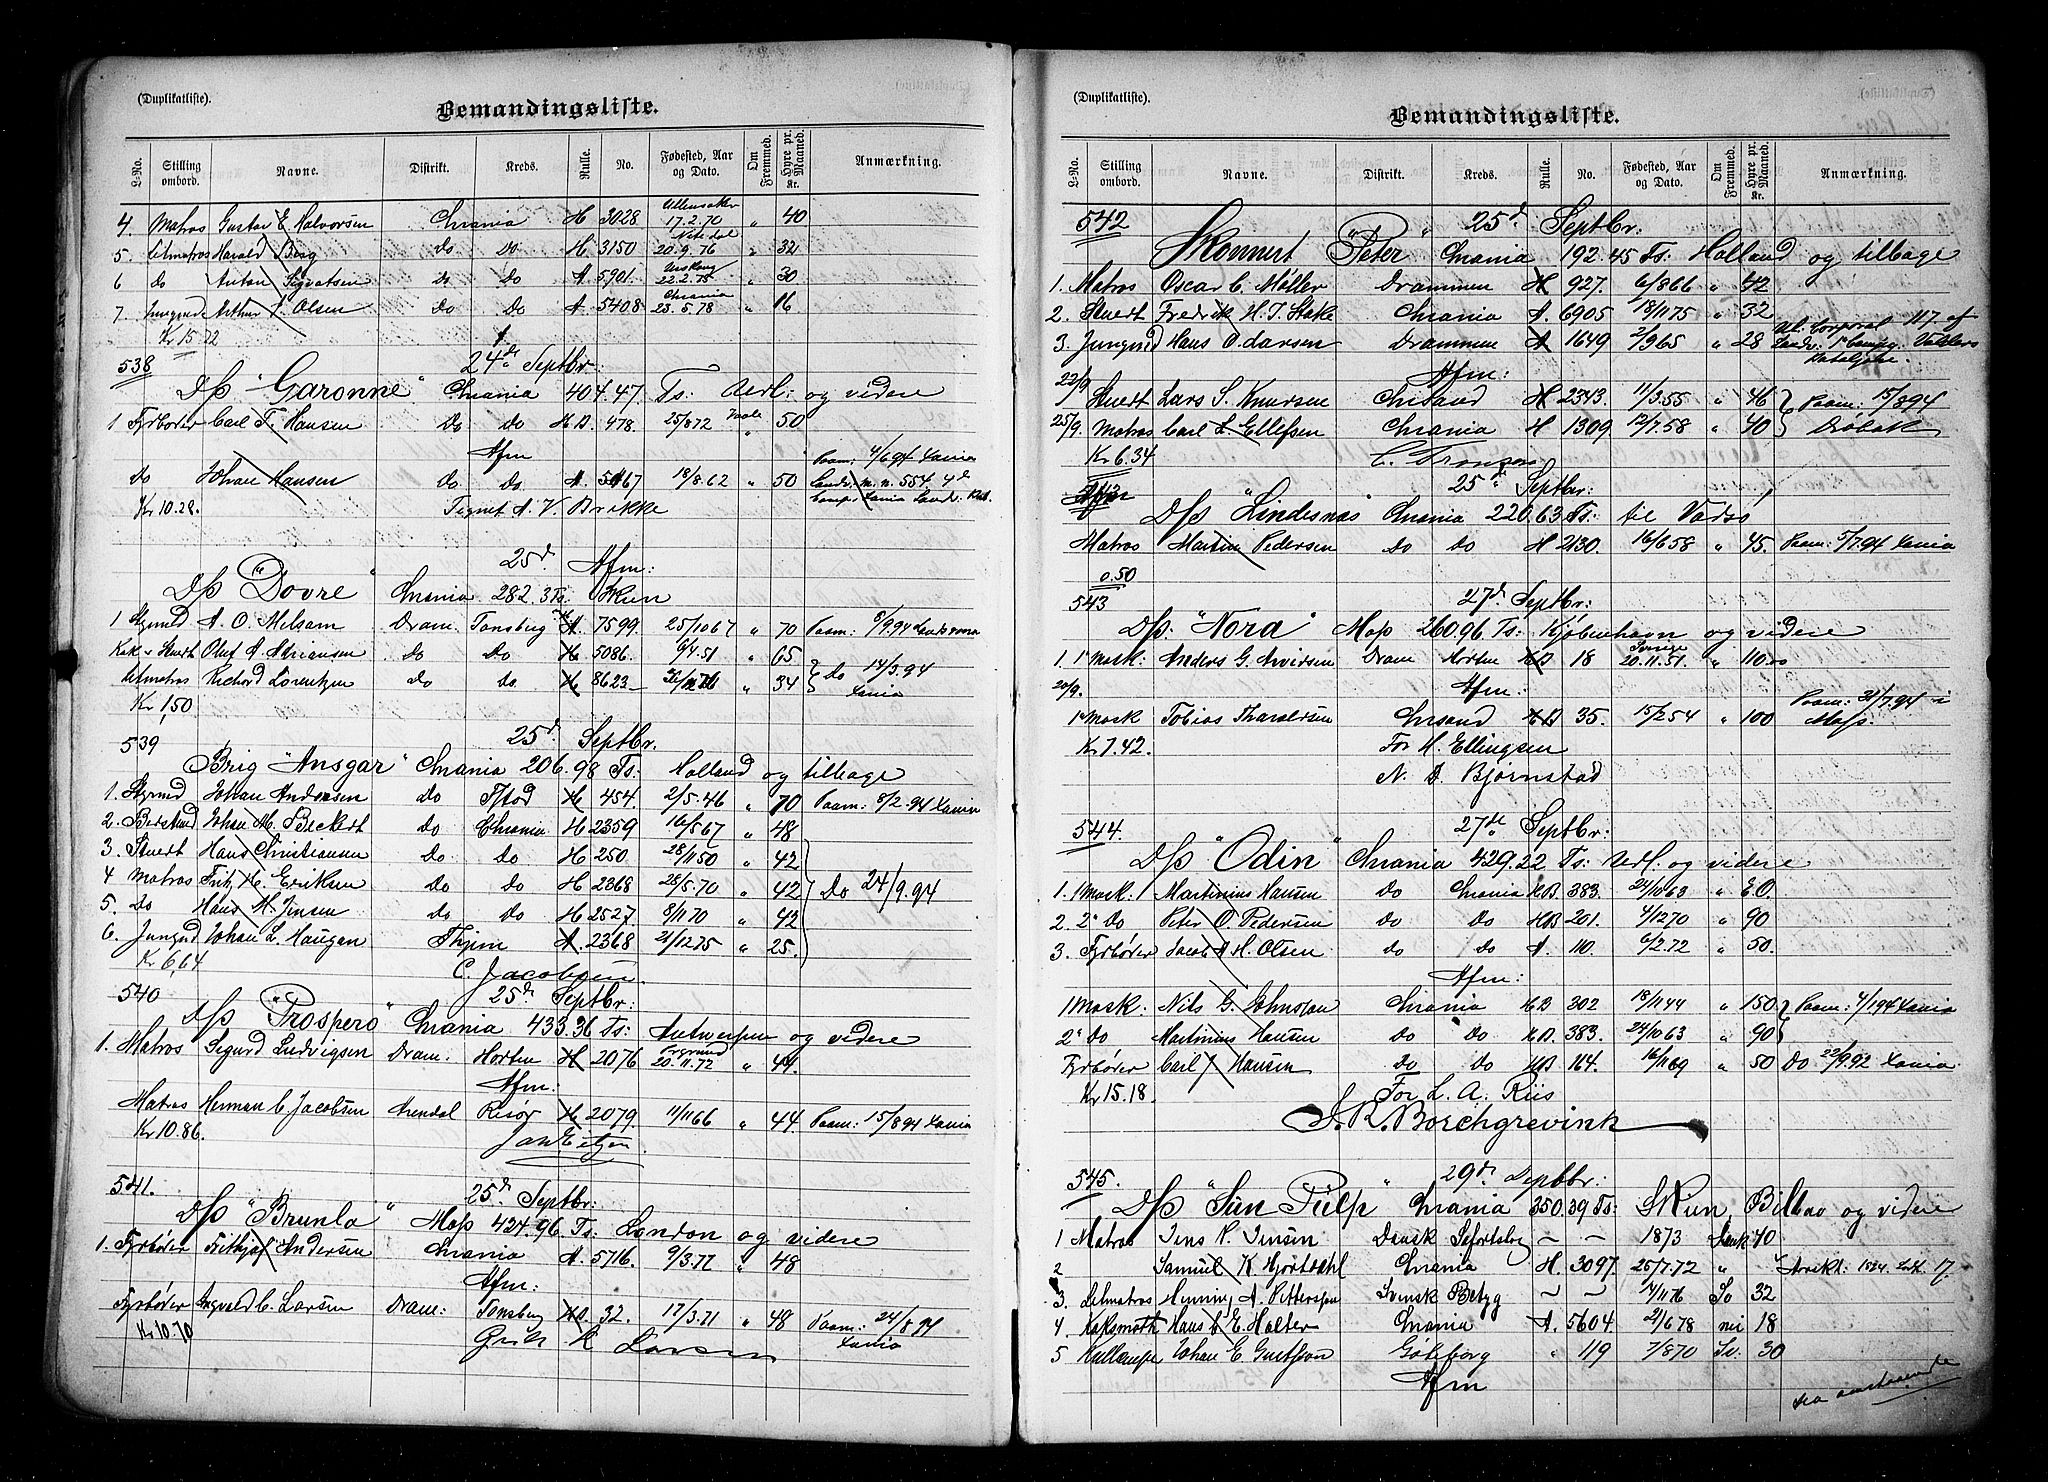 (Duplikatliste).
Bemandingsliste.
L-No. Stilling ombord. Navne. Distrikt. Kreds. Rulle. No. Fødested, Aar og Dato. Om Fremmed. Hyre pr. Maaned. Kr. Anmærkning.
4. Matros Gustav E Halvorsen Chrania H 3028 Ullensaker 17.2.70 " 40
5 Letmatros Harald Berg Do Do H 3150 Nitedal 20.9.76 " 32
6 Do Anton Sigvatsen Do Do A 5901 22.2.75 " 30
7. Jungmd Arthur Olsen Do Do A 5408 Chrania 23.5.78 " 16
Kr 15.72
538 24de Septbr:
D/S "Garonne" Chrania 404.47 Ts: Uerl: og videre
1 Fyrbøder Carl F. Hansen Do Do H.D. 478. 25/872 " 50
Afm
Do Johan Hansen Do Do A. 5067 18/8.62 " 50 Paam: 4/6.94 Xania
Kr 10.28. Tignet A. V. Brikke
25d Afm:
D/S "Dovre" Chrania 282.3 Ts: Skien
1 Stymd A. O. Melsom Dram: Tønsberg A. 7599. 25/1067 " 70 Paam: 8/9.94
Kok & Stuert Oluf A. Adriansen Do Do H 5086. 6/4.51 " 65
Letmatros Richard Lorentzen Do Do. H 8623 " 34 Do 14/3.94 Xania
Kr 1,50
539 25d. Septbr.
Brig "Ansgar" Chrania 206.98 Ts: Holland og tilbage
1. Stymd Johan Andersen Do Fstad H 454. 2/5.46 " 70 Paam: 8/2.94 Xania
2. Bestmd Johan M. Bickert Do Chrania H 2359 16/567 " 48
3. Stuert Hans Christiansen Do Do H 250. 28/1150 " 42
4 Matros Fritz H. Eriksen Do Do H 2368 28/5.70 " 42 Do 24/9.94
5. Do Hans M. Jensen Do Do H 2527 8/1170 " 42
6. Jungmd Johan L. Haugen Thjem A. 2368 21/1275 " 25.
Kr 6,64 C. Jacobsen
540 25de Septbr:
D/S "Prospero" Chrania 433.36 Ts: Antwerpen og videre
1. Matros Sigurd Ludvigsen Dram: Horten H 2076 20.11.72 " 44.
Afm:
Matros Herman C. Jacobsen Arendal Risør H 2079. 11/1166 " 44 Paam: 15/894 Xania
Kr 10.86.
541. 25d Septbr:
D/S "Brunla" Moss 424.96 Ts: London og videre
1. Fyrbøder Frithjof Andersen Chrania A. 5716. 9/3.77 " 48
Afm:
Fyrbøder Ingvald C. Larsen Dram: Tønsberg 32. 17/3.71 " 48 Paam: 24/8 94 Xania
Kr 10.70 Larsen
(Duplikatliste).
Bemandingsliste.
L-No. Stilling ombord. Navne. Distrikt. Kreds. Rulle. No. Fødested, Aar og Dato. Om Fremmed. Hyre pr. Maaned. Kr. Anmærkning.
542 25d Septbr:
Skonnert "Peter" Chrania 192.45 Ts: Holland og tilbage
1. Matros Oscar C. Møller Drammen H 927. 6/866 " 42
2. Stuert Fredrik H. J. Stake Chrania A. 6905 18/1175 " 32
3. Jungmd Hans O. Larsen Drammen A 1649 2/965 " 28
22/9 Afm:
Stuert Lars S. Knudsen Chrsand H 2343. 11/3.55 " 46 Paam: 15/894
25/9. Matros Carl L. Ellefsen Chrania H 1309 12/7.58 " 40 Drøbak
Kr 6.34
25 Septbr:
D/S "Lindesnæs" Chrania 220.63 Ts: til Vadsø
Matros Martin Pedersen Do Do H 2130. 16/658 " 45. Paam: 5/7.94 Xania
0.50
543 27d. Septbr:
D/S "Nora" Moss 260.96 Ts: Kjøbenhavn og videre
1. 1' Mask: Anders G. Arvidsen Dram Horten 18 20.11.51 " 110.00
20/9. Afm:
1' Mask Tobias Tharaldsen Chrsand 35. 15/254 " 100 Paam: 31/7.94 i Moss.
Kr 7.42. For H. Ellingsen
N. A. Bjørnstad
544. 27de Septbr:
D/S "Odin" Chrania 429.22 Ts: Uerl. og videre
1. 1 Mask: Martinius Hansen Do Chrania 383. 24/1063 "
2 2' Do Peter O. Pedersen Do Do HB 201. 4/1270 " 90
3. Fyrbøder Jacob A. H. Olsen do do A. 110. 6/2.72 " 50.
Afm:
1 Mask: Nils G. Johnsson Chrania 302 18/1144 " 150 Paam: 4/194 Xania
2' Do Martinius Hansen Do Do 383. 24/1063 " 90
Fyrbøder Carl J Hansen Do Do HB 164. 16/1169 " 50 Do 22/9.92 Xania
Kr 15.18. For L. A. Riis
Borchgrevink
545. 29d Septbr:
D/S "Sün Tülp" Chrania 350.39 Ts: Skien, Bilbao og videre
1 Matros Jens P. Jensen Dansk — — 1873 Dansk 40
2 Samuel K Hjortdahl Chrania H. 3097. 25/7.72 "
3. Letmatros Henning A. Pettersson Svensk — — 14/1176 Sv 32
4 Koksmath Hans C. E. Holter Chrania A. 5604. 21/678 nei 18
5 Kullempe Johan E Gustafson Göteborg " 119 7/870 Sv: 30
Afm